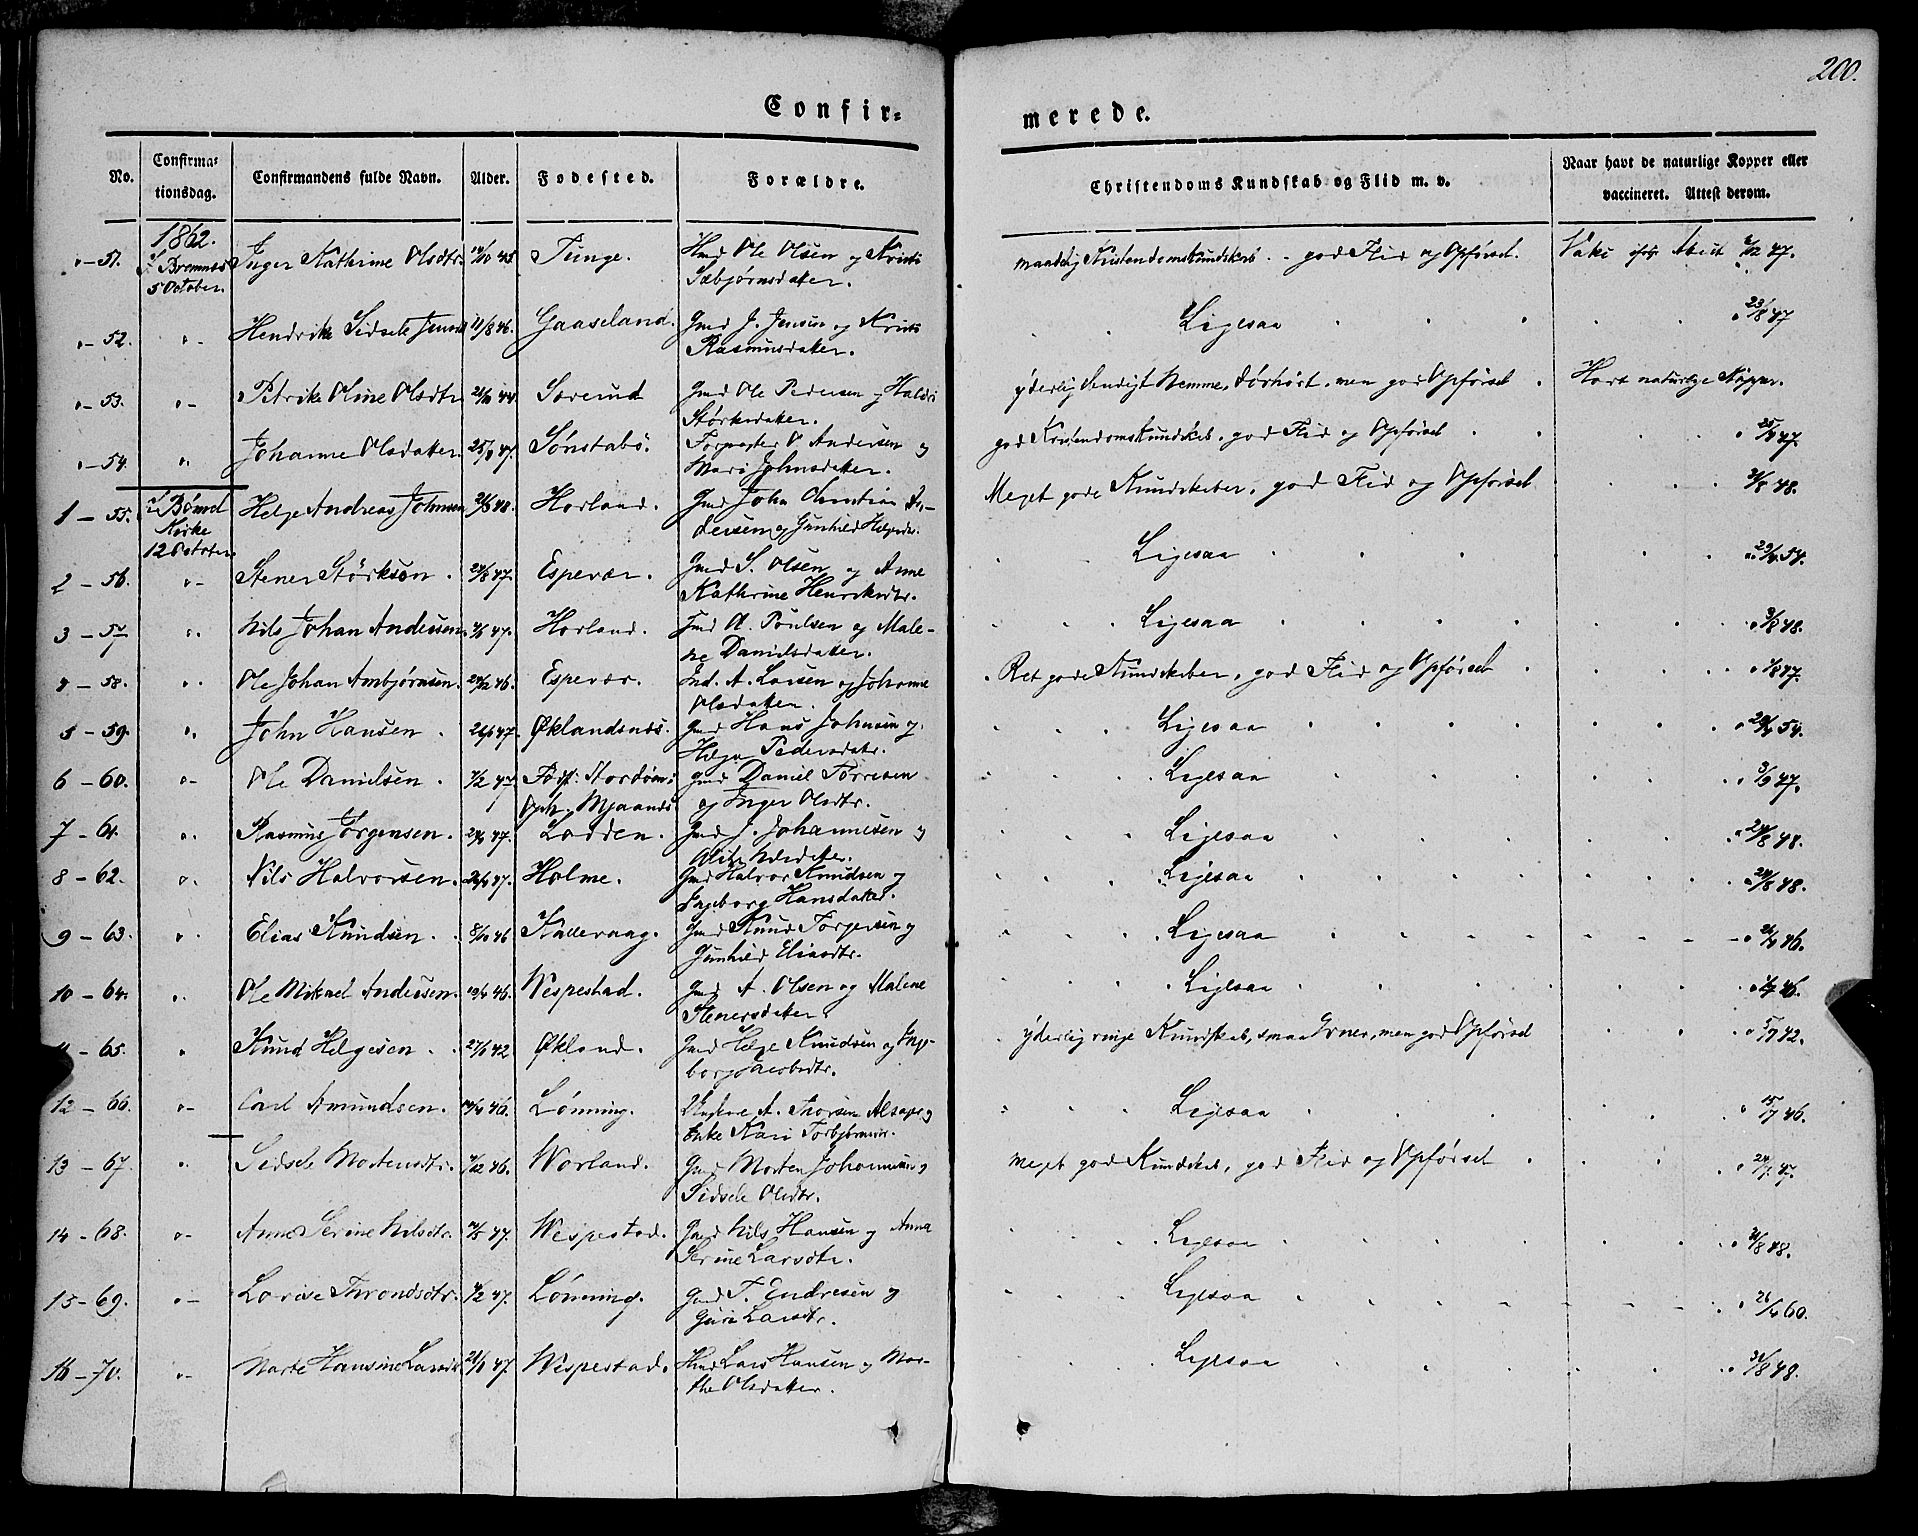 200.
Confir=
merede.
No.
Confirma=
tionsdag.
Confirmandens fulde Navn.
Alder.
Fødested.
Forældre.
Christendoms Kundskab og Flid m. v.
Naar havt de naturlige Kopper eller
vaccineret. Attest derom.
1862.
"-51. I Bremnes Inger Kathrine Olsdtr. 14/10 45 Tunge. Hmd Ole Olsen og Kristi
5 October. Sæbjørnsdatter.
maadelig Kristendomskundskab - god Flid og Opførsel. 2/12 47.
"-52. "- Hendrike Sidsele Jensd 11/8 46. Gaaseland. Gmd J. Jensen og Kristi
Rasmusdatter.
Ligesaa 23/8 47
"-53. "- Petrike Oline Olsdtr 44 Gmd Ole Pedersen og
Størksdatter.
yderlig Nemme, men god Opførsel. Havt naturlige Kopper.
"-54. " Johanne Olsdatter. 47. Sønstabø. O Andersen og
Mari Johnsdatter.
god Kristendomskundskab, god Flid og Opførsel 47.
1-55. I Bømel Helge Andreas Johnsen 48. Horland. Gmd John Christian Pe-
Kirke dersen og Gunhild
12 October
Meget gode Kundskaber, god Flid og Opførsel 48.
2-56. "- Stener Størksøn. 24/8 47. Espevær. Gmd S. Olsen og Anne
Kathrine Henriksdtr.
Ligesaa 54.
3-57 ". Nils Johan Andersen. 47. Horland. A. Poulsen og Male-
ne Danielsdatter.
Ligesaa 48.
4-58. ". Ole Johan Ambjørnsen. 24/12 46. Espevær. A. Larsen og Johanne
Olsdatter.
Ret gode Kundskaber, god Flid og Opførsel 47.
5-59. ". John Hansen. 47. Øklandsnæs. Gmd Hans Johnsen og
Helga Pedersdatr.
Ligesaa 54.
6-60. "- Ole Danielsen. 7/2 47 Stordøen; Gmd Daniel Torresen
Oph. og Inger Olsdtr.
Ligesaa 3/9 47.
7-61. ". Rasmus Jørgensen. 47. Lodden. Gmd J. Johannesen og
Ligesaa 24/8 48.
8-62. ". Nils Halvorsen. 47. Holme. Gmd Halvor Knudsen og
Ingeborg Hansdatter.
Ligesaa 24/8 48.
9-63. ". Elias Knudsen. 8/10 46 Kallevaag. Gmd Knud Torgersen og
Gunhild Eliasdtr.
Ligesaa 46.
10-64. ". Ole Mikael Andersen. 19/4 46. Vespestad. Gmd A. Olsen og Malene
Stenersdatter
Ligesaa 46.
11-65. " Knud Helgesen. 27/6 42 Økland. Gmd Helge Knudsen og Inge-
borg Jacobsdtr.
yderlig ringe Kundskab, smaa Evner, men god Opførsel 42.
12-66. "- Carl Amundsen. 46. Lønning. Ungkarl A. Thorsen og
Enke Kari
Ligesaa 46.
13-67. ". Sidsele Mortensdtr. 46. Vorland. Gmd Morten Johannesen og
Sidsele Olsdtr.
meget god Kundskab, god Flid og Opførsel 47.
14-68. "- Anne Serine Nilsdtr. 47. Vespestad. Gmd Nils Hansen og Anna
Serine Larsdtr.
Ligesaa 48.
15-69. "- Lovise Throndsdtr. 47. Lønning. Gmd T. Endresen og
Guri Larsdtr.
Ligesaa 26/4 60.
16-70. "- Marte Hansine Larsd 47. Vespestad. Hmd Lars Hansen og Mar-
the Olsdatter.
Ligesaa 48.